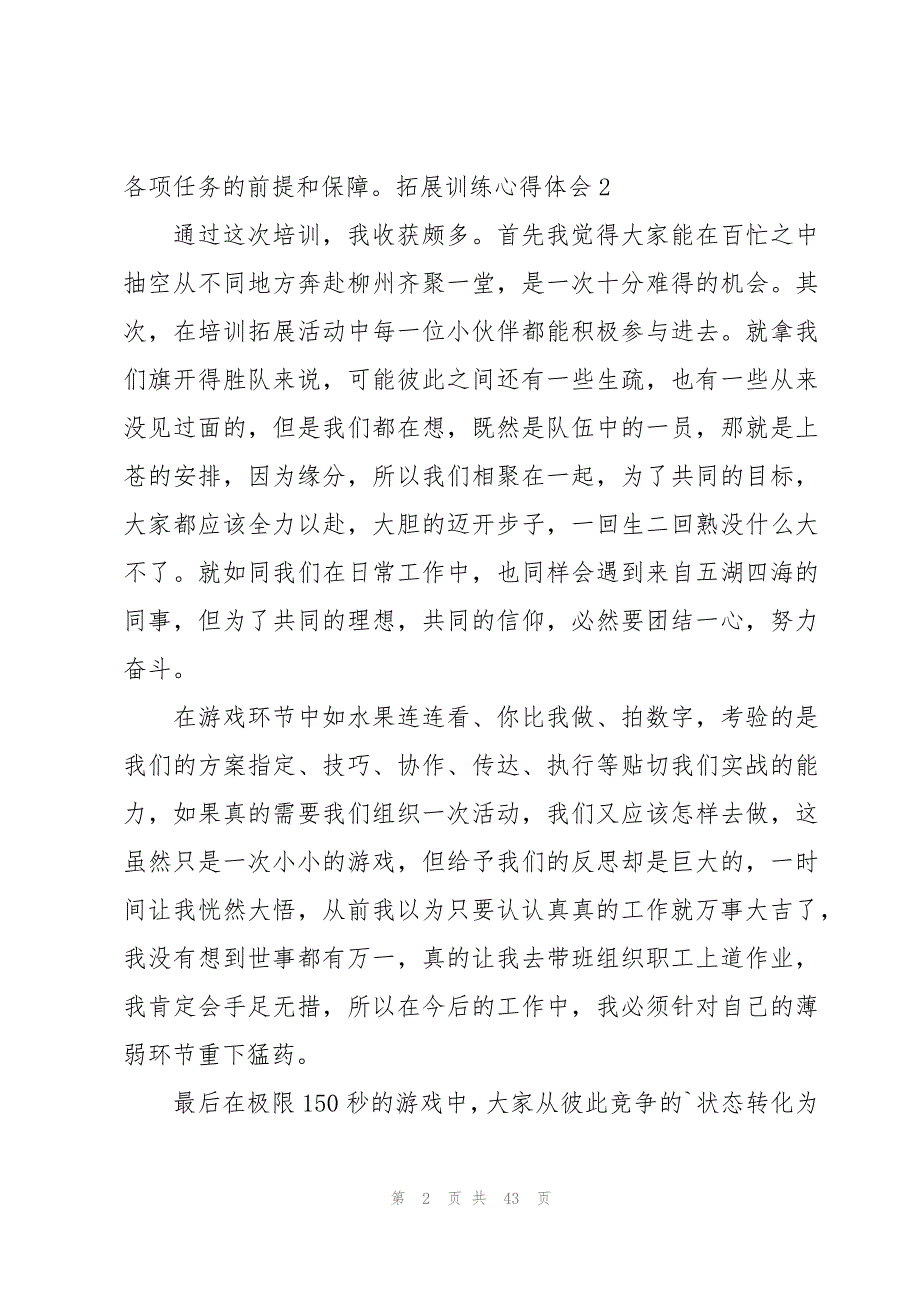 各项任务的前提和保障。拓展训练心得体会2
通过这次培训，我收获颇多。首先我觉得大家能在百忙之中
抽空从不同地方奔赴柳州齐聚一堂，是一次十分难得的机会。其
次，在培训拓展活动中每一位小伙伴都能积极参与进去。就拿我
们旗开得胜队来说，可能彼此之间还有一些生疏，也有一些从来
没见过面的，但是我们都在想，既然是队伍中的一员，那就是上
苍的安排，因为缘分，所以我们相聚在一起，为了共同的目标，
大家都应该全力以赴，大胆的迈开步子，一回生二回熟没什么大
不了。就如同我们在日常工作中，也同样会遇到来自五湖四海的
同事，但为了共同的理想，共同的信仰，必然要团结一心，努力
奋斗。
在游戏环节中如水果连连看、你比我做、拍数字，考验的是
我们的方案指定、技巧、协作、传达、执行等贴切我们实战的能
力，如果真的需要我们组织一次活动，我们又应该怎样去做，这
虽然只是一次小小的游戏，但给予我们的反思却是巨大的，一时
间让我恍然大悟，从前我以为只要认认真真的工作就万事大吉了，
我没有想到世事都有万一，真的让我去带班组织职工上道作业，
我肯定会手足无措，所以在今后的工作中，我必须针对自己的薄
弱环节重下猛药。
最后在极限150秒的游戏中，大家从彼此竞争的`状态转化为
第 2 页 共 43 页